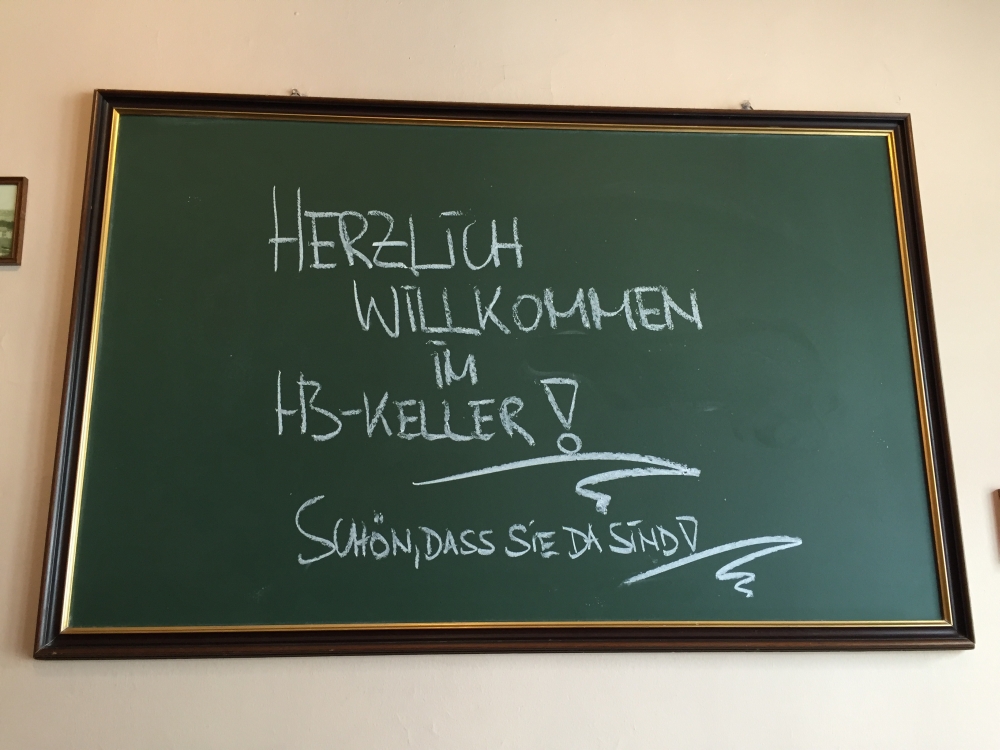 HERZLICH
WILLKOMMEN
IM
HB-KELLER!
SCHÖN, DASS SIE DA SIND!